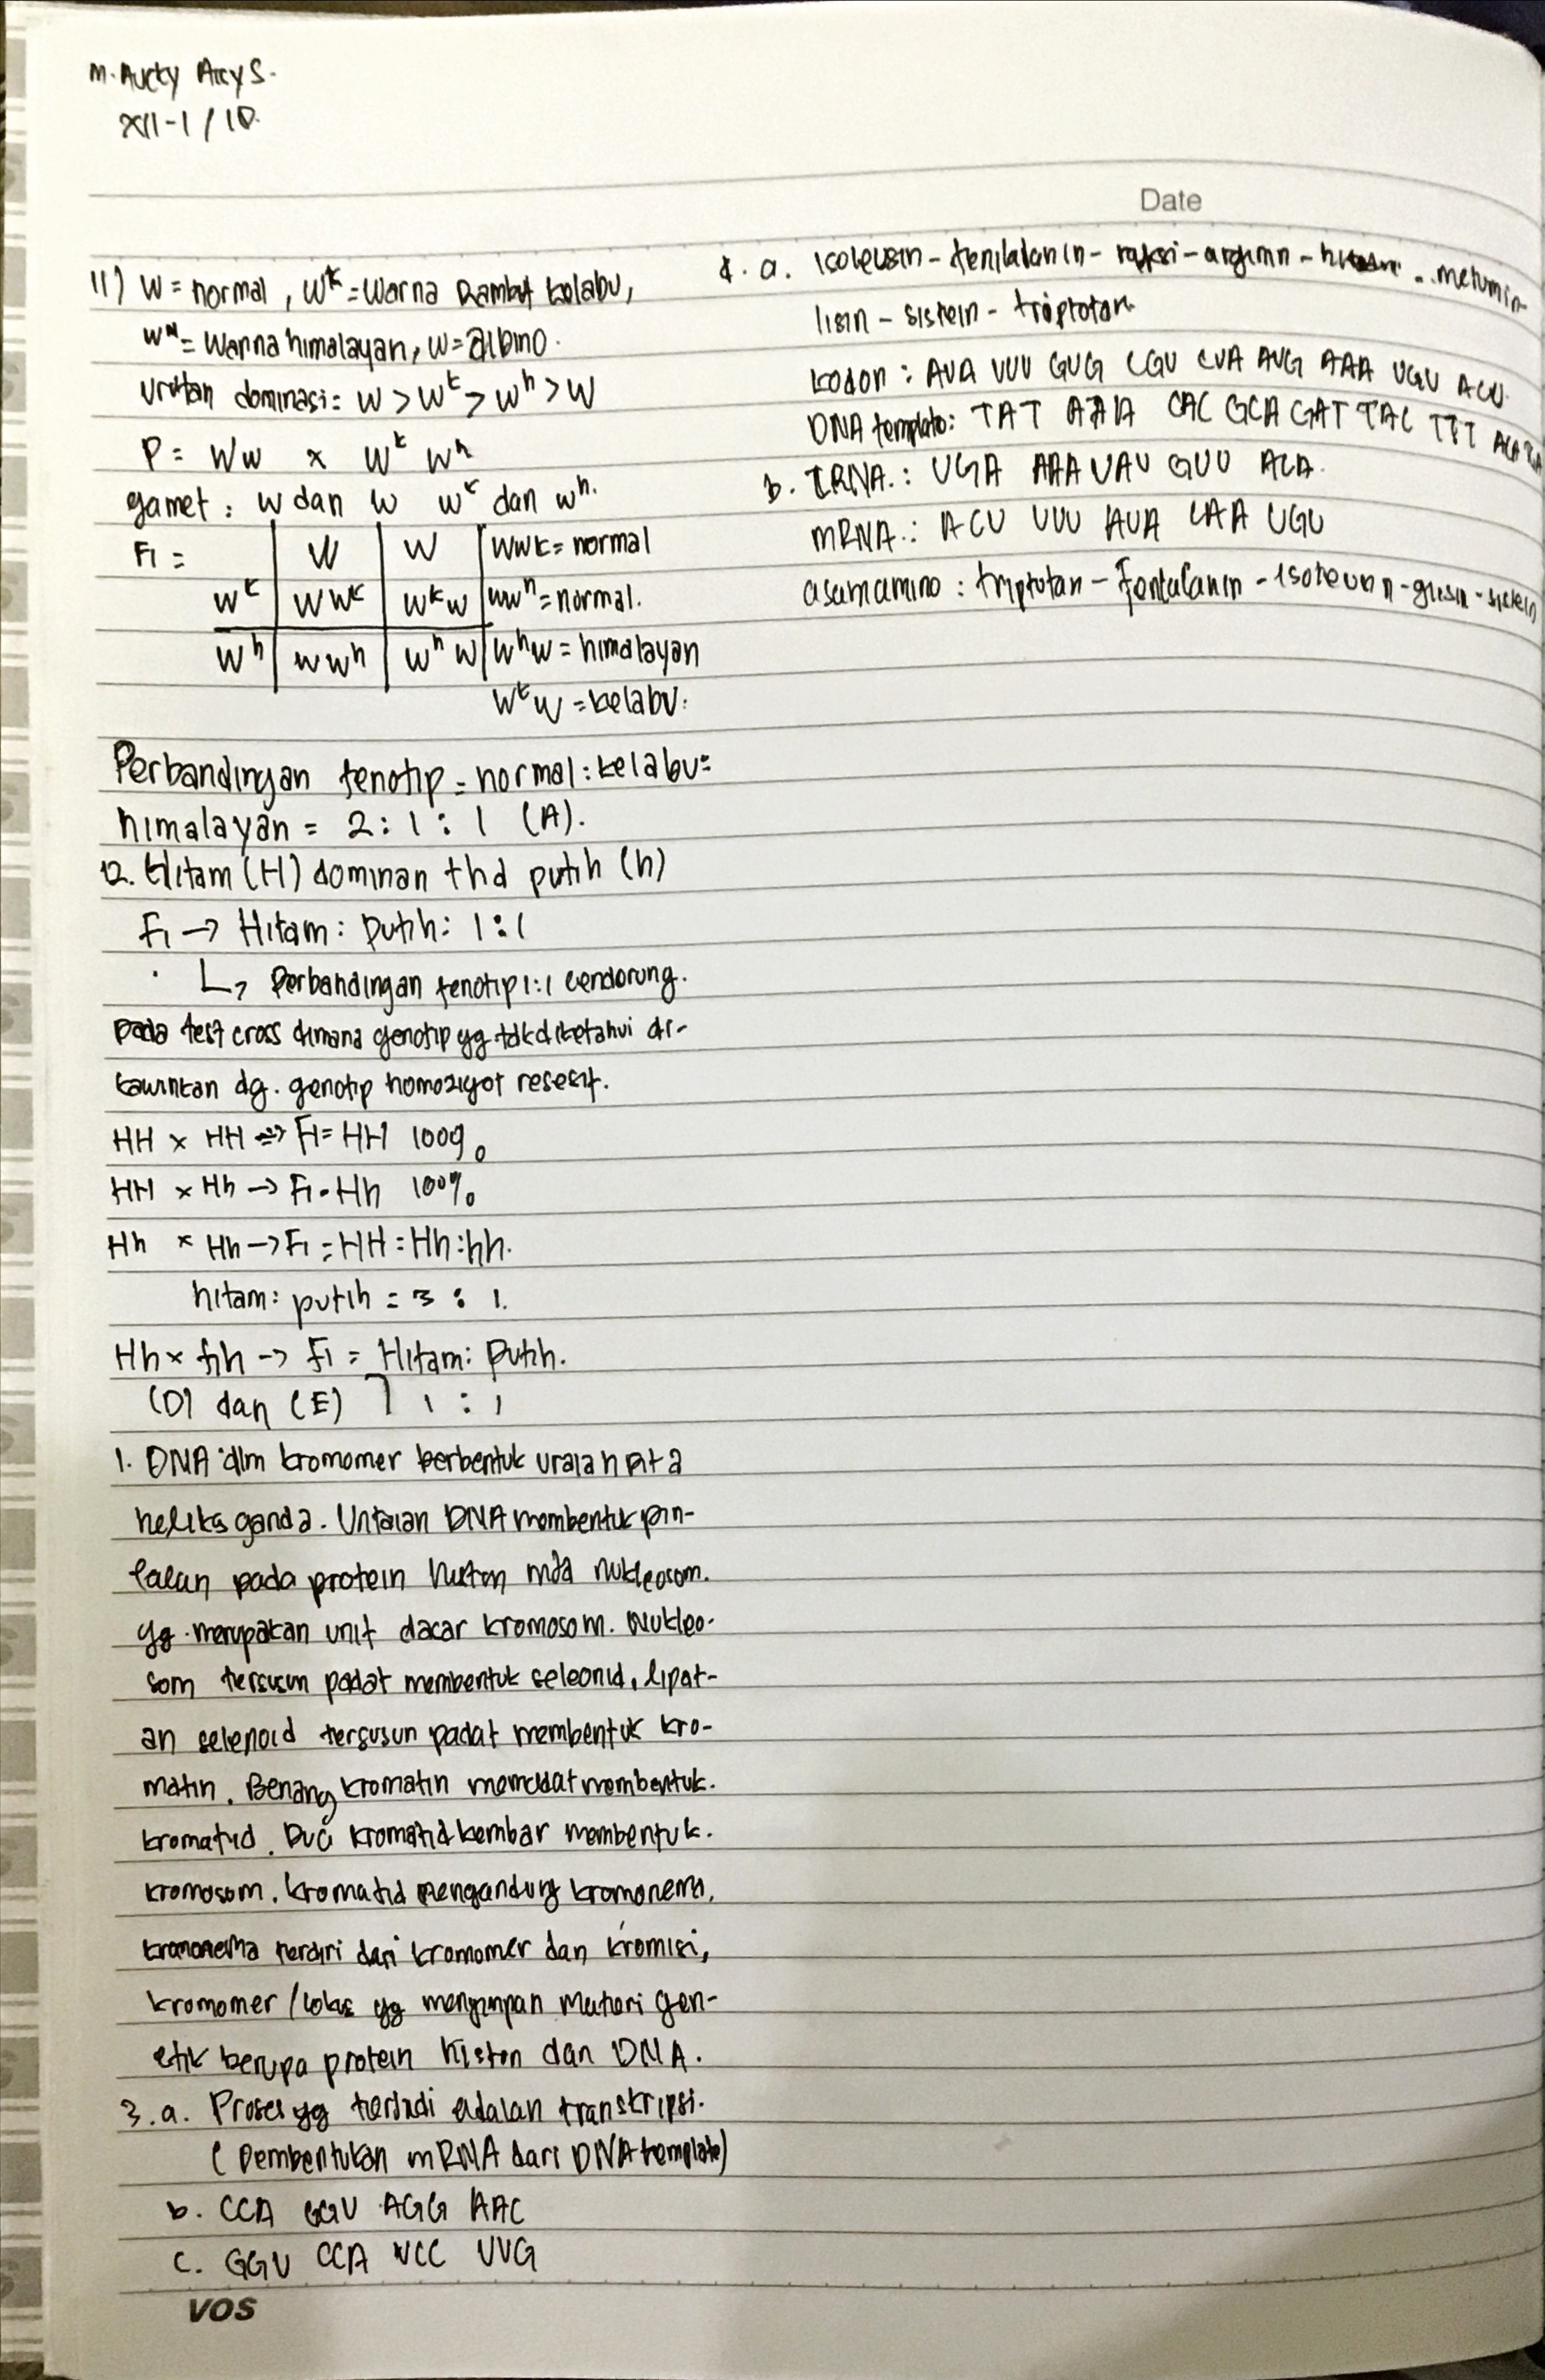 M. Aucky Arcy S.
XII-1 / 10.
Date
11) W = normal, Wᵏ = Warna Rambut kelabu,
Wᴺ = Warna himalayan, w = albino.
Urutan dominasi = W > Wᵏ > Wʰ > W
P = Ww x Wᵏ Wʰ
gamet : W dan W Wᵏ dan Wʰ.
F1 = W W WWK = normal
Wᵏ WWᵏ Wᵏw WWʰ = normal.
Wʰ WWʰ Wʰ W Wʰw = himalayan
Wᵏw = kelabu.
Perbandingan fenotip = normal : kelabu =
himalayan = 2 : 1 : 1 (A).
12. Hitam (H) dominan thd putih (h)
F1 → Hitam : Putih : 1 : 1
↳ Perbandingan fenotip 1:1 cendorung.
pada test cross dimana genotip yg tdk diketahui di-
kawinkan dg. genotip homozigot resesif.
HH x HH => F1 = HH 100%
HH x Hh → F1 = Hh 100%
Hh x Hh → F1 = HH : Hh : hh.
hitam : putih = 3 : 1.
Hh x hh → F1 = Hitam : Putih.
(D) dan (E) 1 : 1
1. DNA dlm kromomer berbentuk uraian pita
heliks ganda. Untaian DNA membentuk pin-
lalan pada protein histon mjd nukleosom.
yg merupakan unit dasar kromosom. Nukleo-
som tersusun padat membentuk seleonid, lipat-
an selenoid tersusun padat membentuk kro-
matin. Benang kromatin memadat membentuk.
kromatid. Dua kromatid kembar membentuk.
kromosom. kromatid mengandung kromonema,
kromonema terdiri dari kromomer dan kromiri,
kromomer / lokus yg menyimpan materi gen-
etik berupa protein histon dan DNA.
3. a. Proses yg terjadi adalah transkripsi.
( Pembentukan mRNA dari DNA template)
b. CCA GGU AGG AAC
c. GGU CCA UCC UUG
4. a. Isoleusin - fenilalanin - - arginin - - metionin
lisin - sistein - triptofan
kodon : AUA UUU GUG CGU CUA AUG AAA UGU ACU.
DNA template : TAT AAA CAC GCA GAT TAC TTT ACA
b. tRNA. : UGA AAA UAU GUU ACA.
mRNA. : ACU UUU AUA CAA UGU
asam amino : triptofan - Fenilalanin - Isoleusin - glisin - sistein
VOS